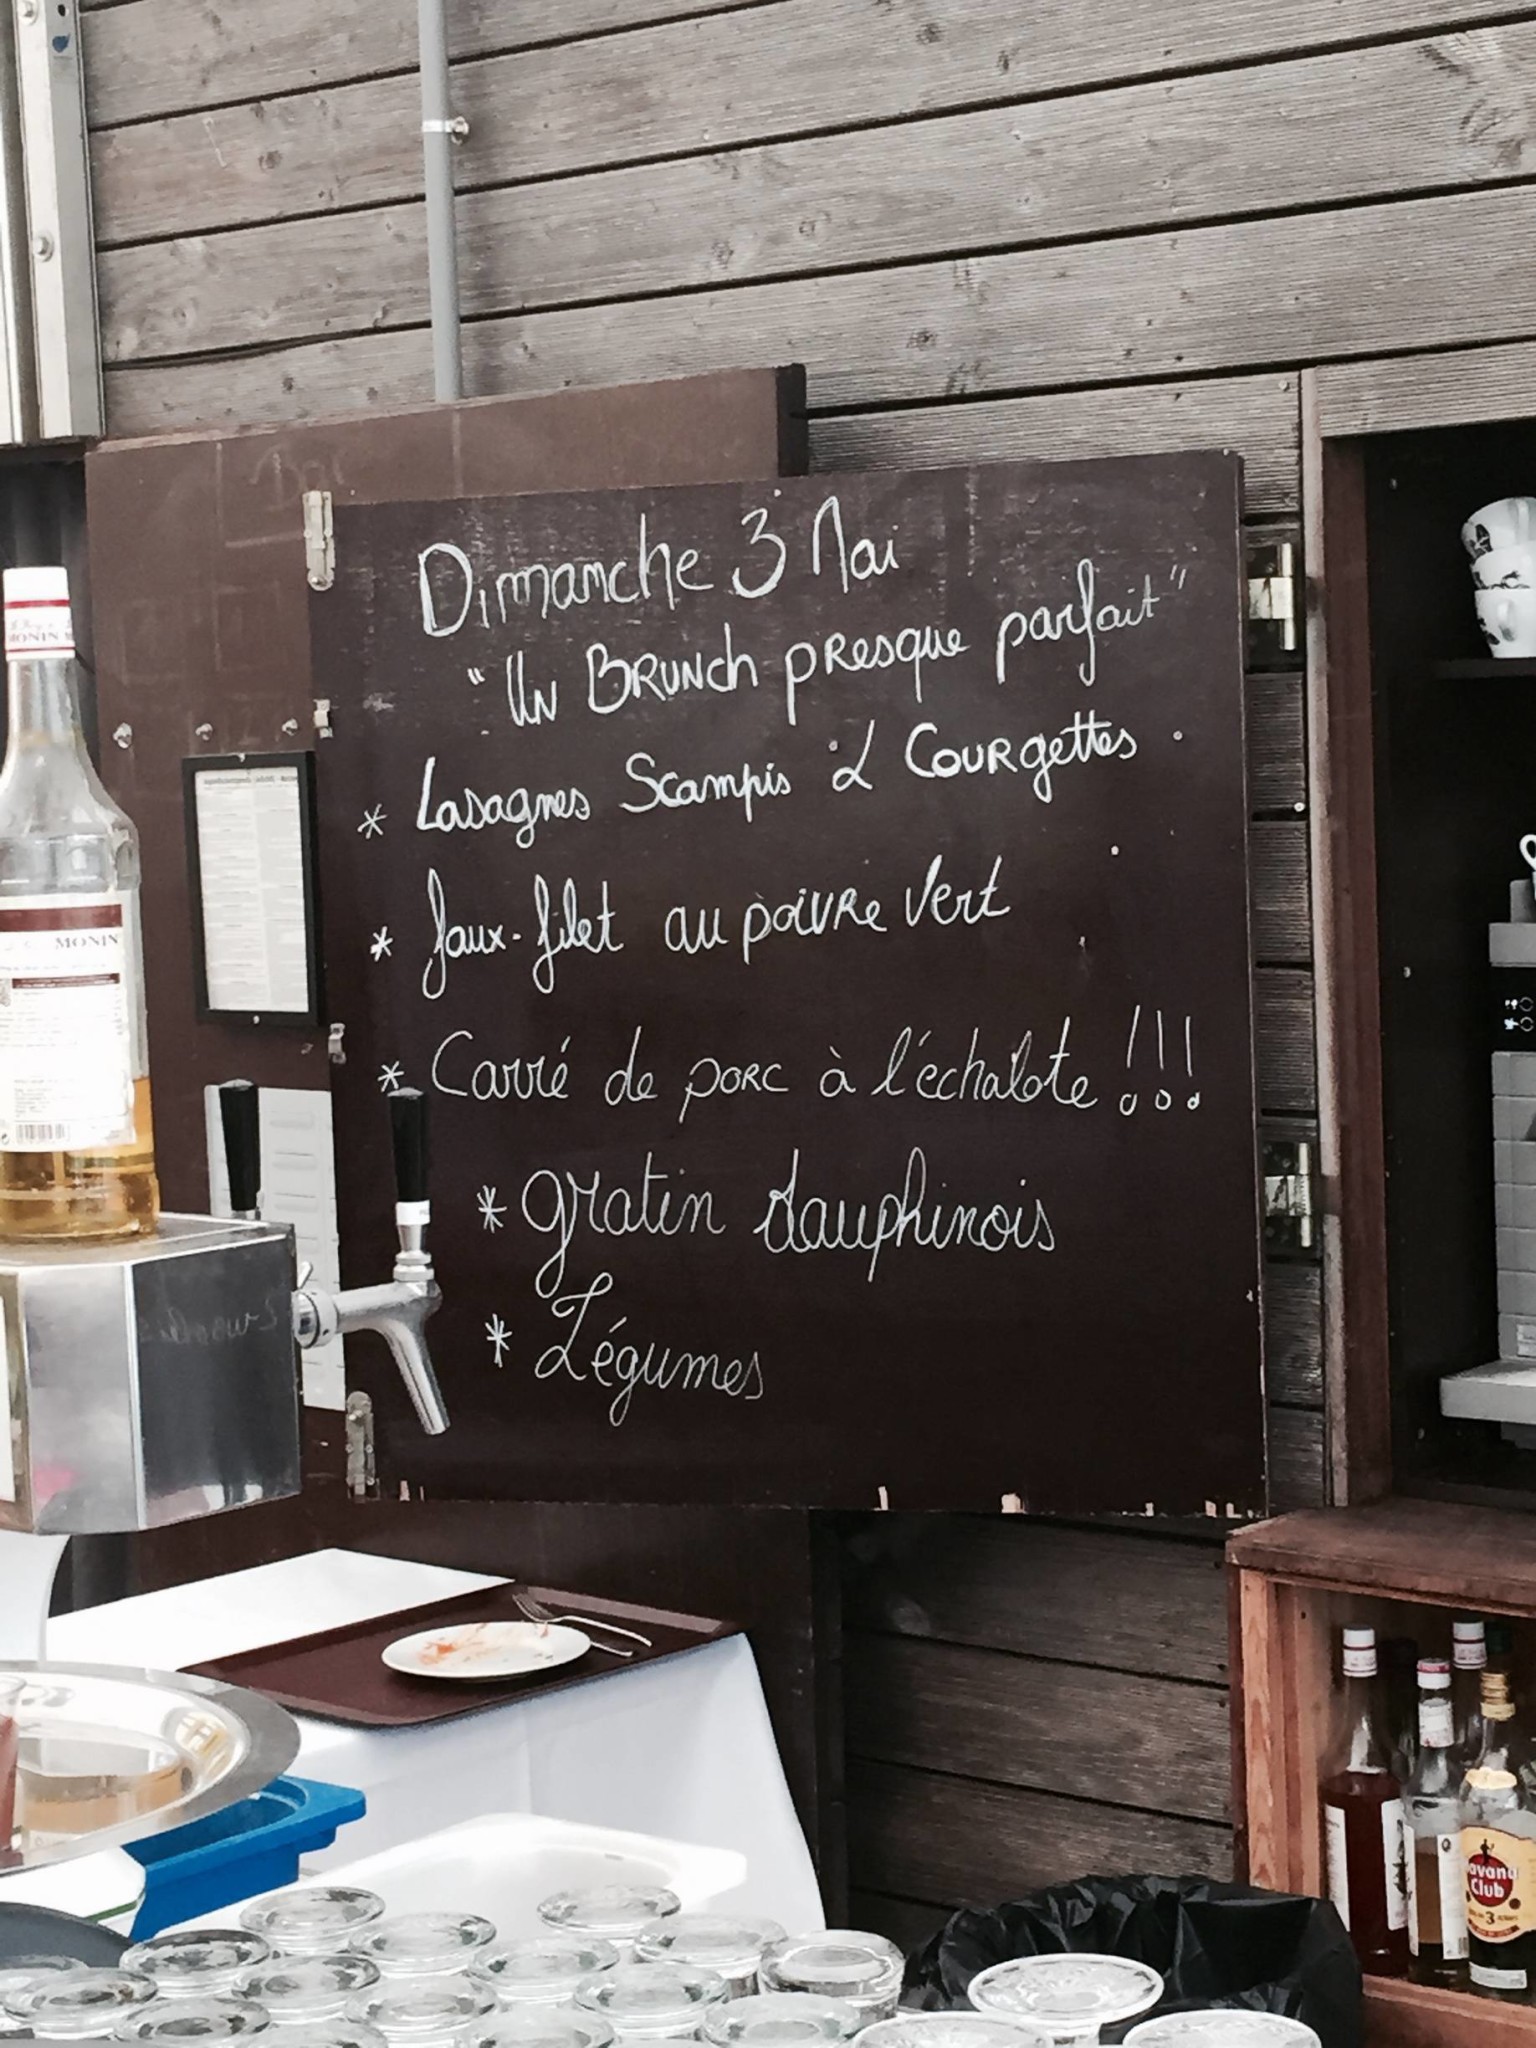 Dimanche 3 Mai
"Un BRUNCh pResque parfait"
* Lasagnes Scampis & COURgettes
* faux-filet au poivRe Vert
* Carré de poRc à l'échalote !!!
* gratin dauphinois
* Légumes
MONIN
MONIN
avana
Club
3